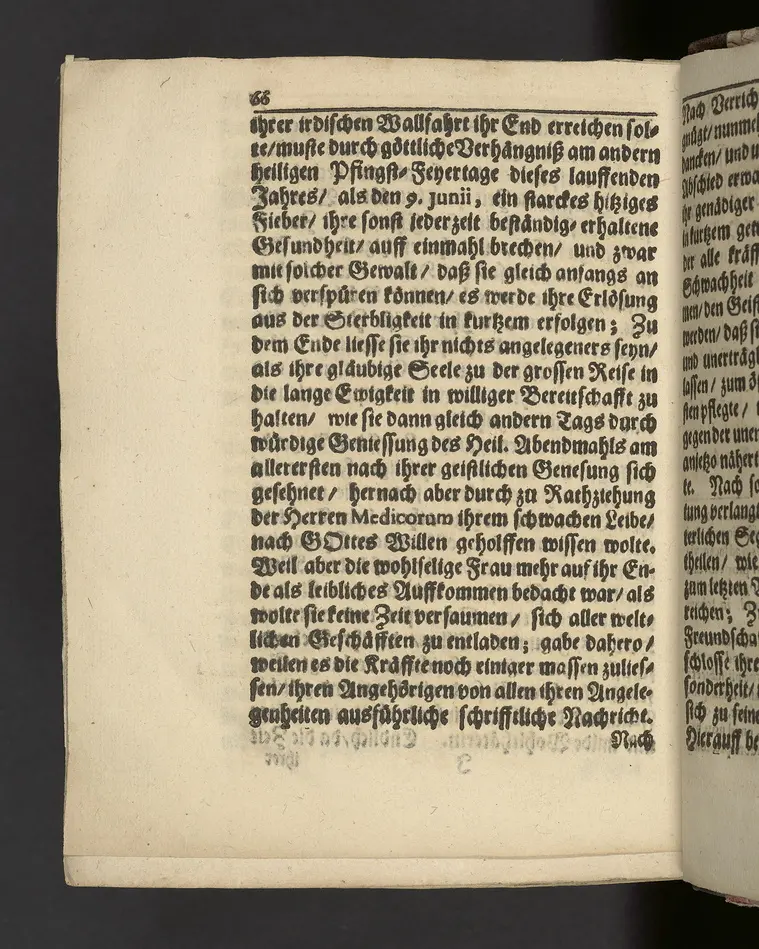 66
ihrer irdischen Wallfahrt ihr End erreichen sol-
te/muste durch göttliche Verhängniß am andern
heiligen Pfingst-Feyertage dieses lauffenden
Jahres/ als den 9. Junii, ein starckes hitziges
Fieber/ ihre sonst jederzeit beständig-erhaltene
Gesundheit/ auff einmahl brechen/ und zwar
mit solcher Gewalt/ daß sie gleich anfangs an
sich verspüren können/ es werde ihre Erlösung
aus der Sterbligkeit in kurtzem erfolgen; Zu
dem Ende liesse sie ihr nichts angelegeners seyn/
als ihre gläubige Seele zu der grossen Reise in
die lange Ewigkeit in williger Bereitschafft zu
halten/ wie sie dann gleich andern Tags durch
würdige Geniessung des Heil. Abendmahls am
allerersten nach ihrer geistlichen Genesung sich
gesehnet/ hernach aber durch zu Rathziehung
der Herren Medicorum ihrem schwachen Leibe/
nach GOttes Willen geholffen wissen wolte.
Weil aber die wohlselige Frau mehr auf ihr En-
de als leibliches Auffkommen bedacht war/ als
wolte sie keine Zeit versaumen/ sich aller welt-
lichen Geschäfften zu entladen; gabe dahero/
weilen es die Kräffte noch einiger massen zulies-
sen/ ihren Angehörigen von allen ihren Angele-
genheiten ausführliche schrifftliche Nachricht.
Nach
Nach Verrich
gnügt/ nunmeh
dancken/ und u
Abschied erwa
ihr genädiger
in kurtzem get
der alle kräff
Schwachheit
men/ den Geis
werden/ daß si
und unerträgl
lassen/ zum ö
sten pflegte/
gegen der uner
anjetzo nähert
te. Nach so
tung verlangt
terlichen Seg
theilen/ wie
zum letzten
reichen; Z
Freundscha
schlosse ihre
sonderheit/
sich zu seine
Hierauff be